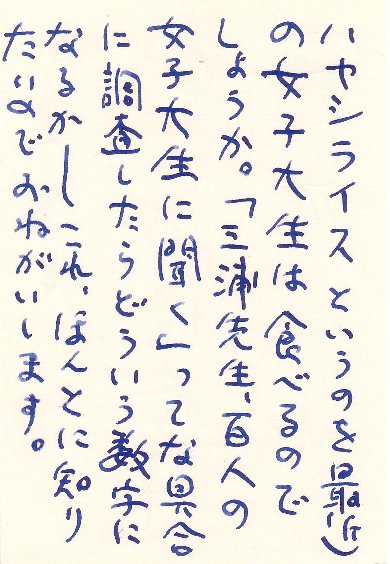 ハヤシライスというのを最近
の女子大生は食べるので
しょうか。「三浦先生、百人の
女子大生に聞く」ってな具合
に調査したらどういう数字に
なるか―これ、ほんとに知り
たいのでおねがいします。